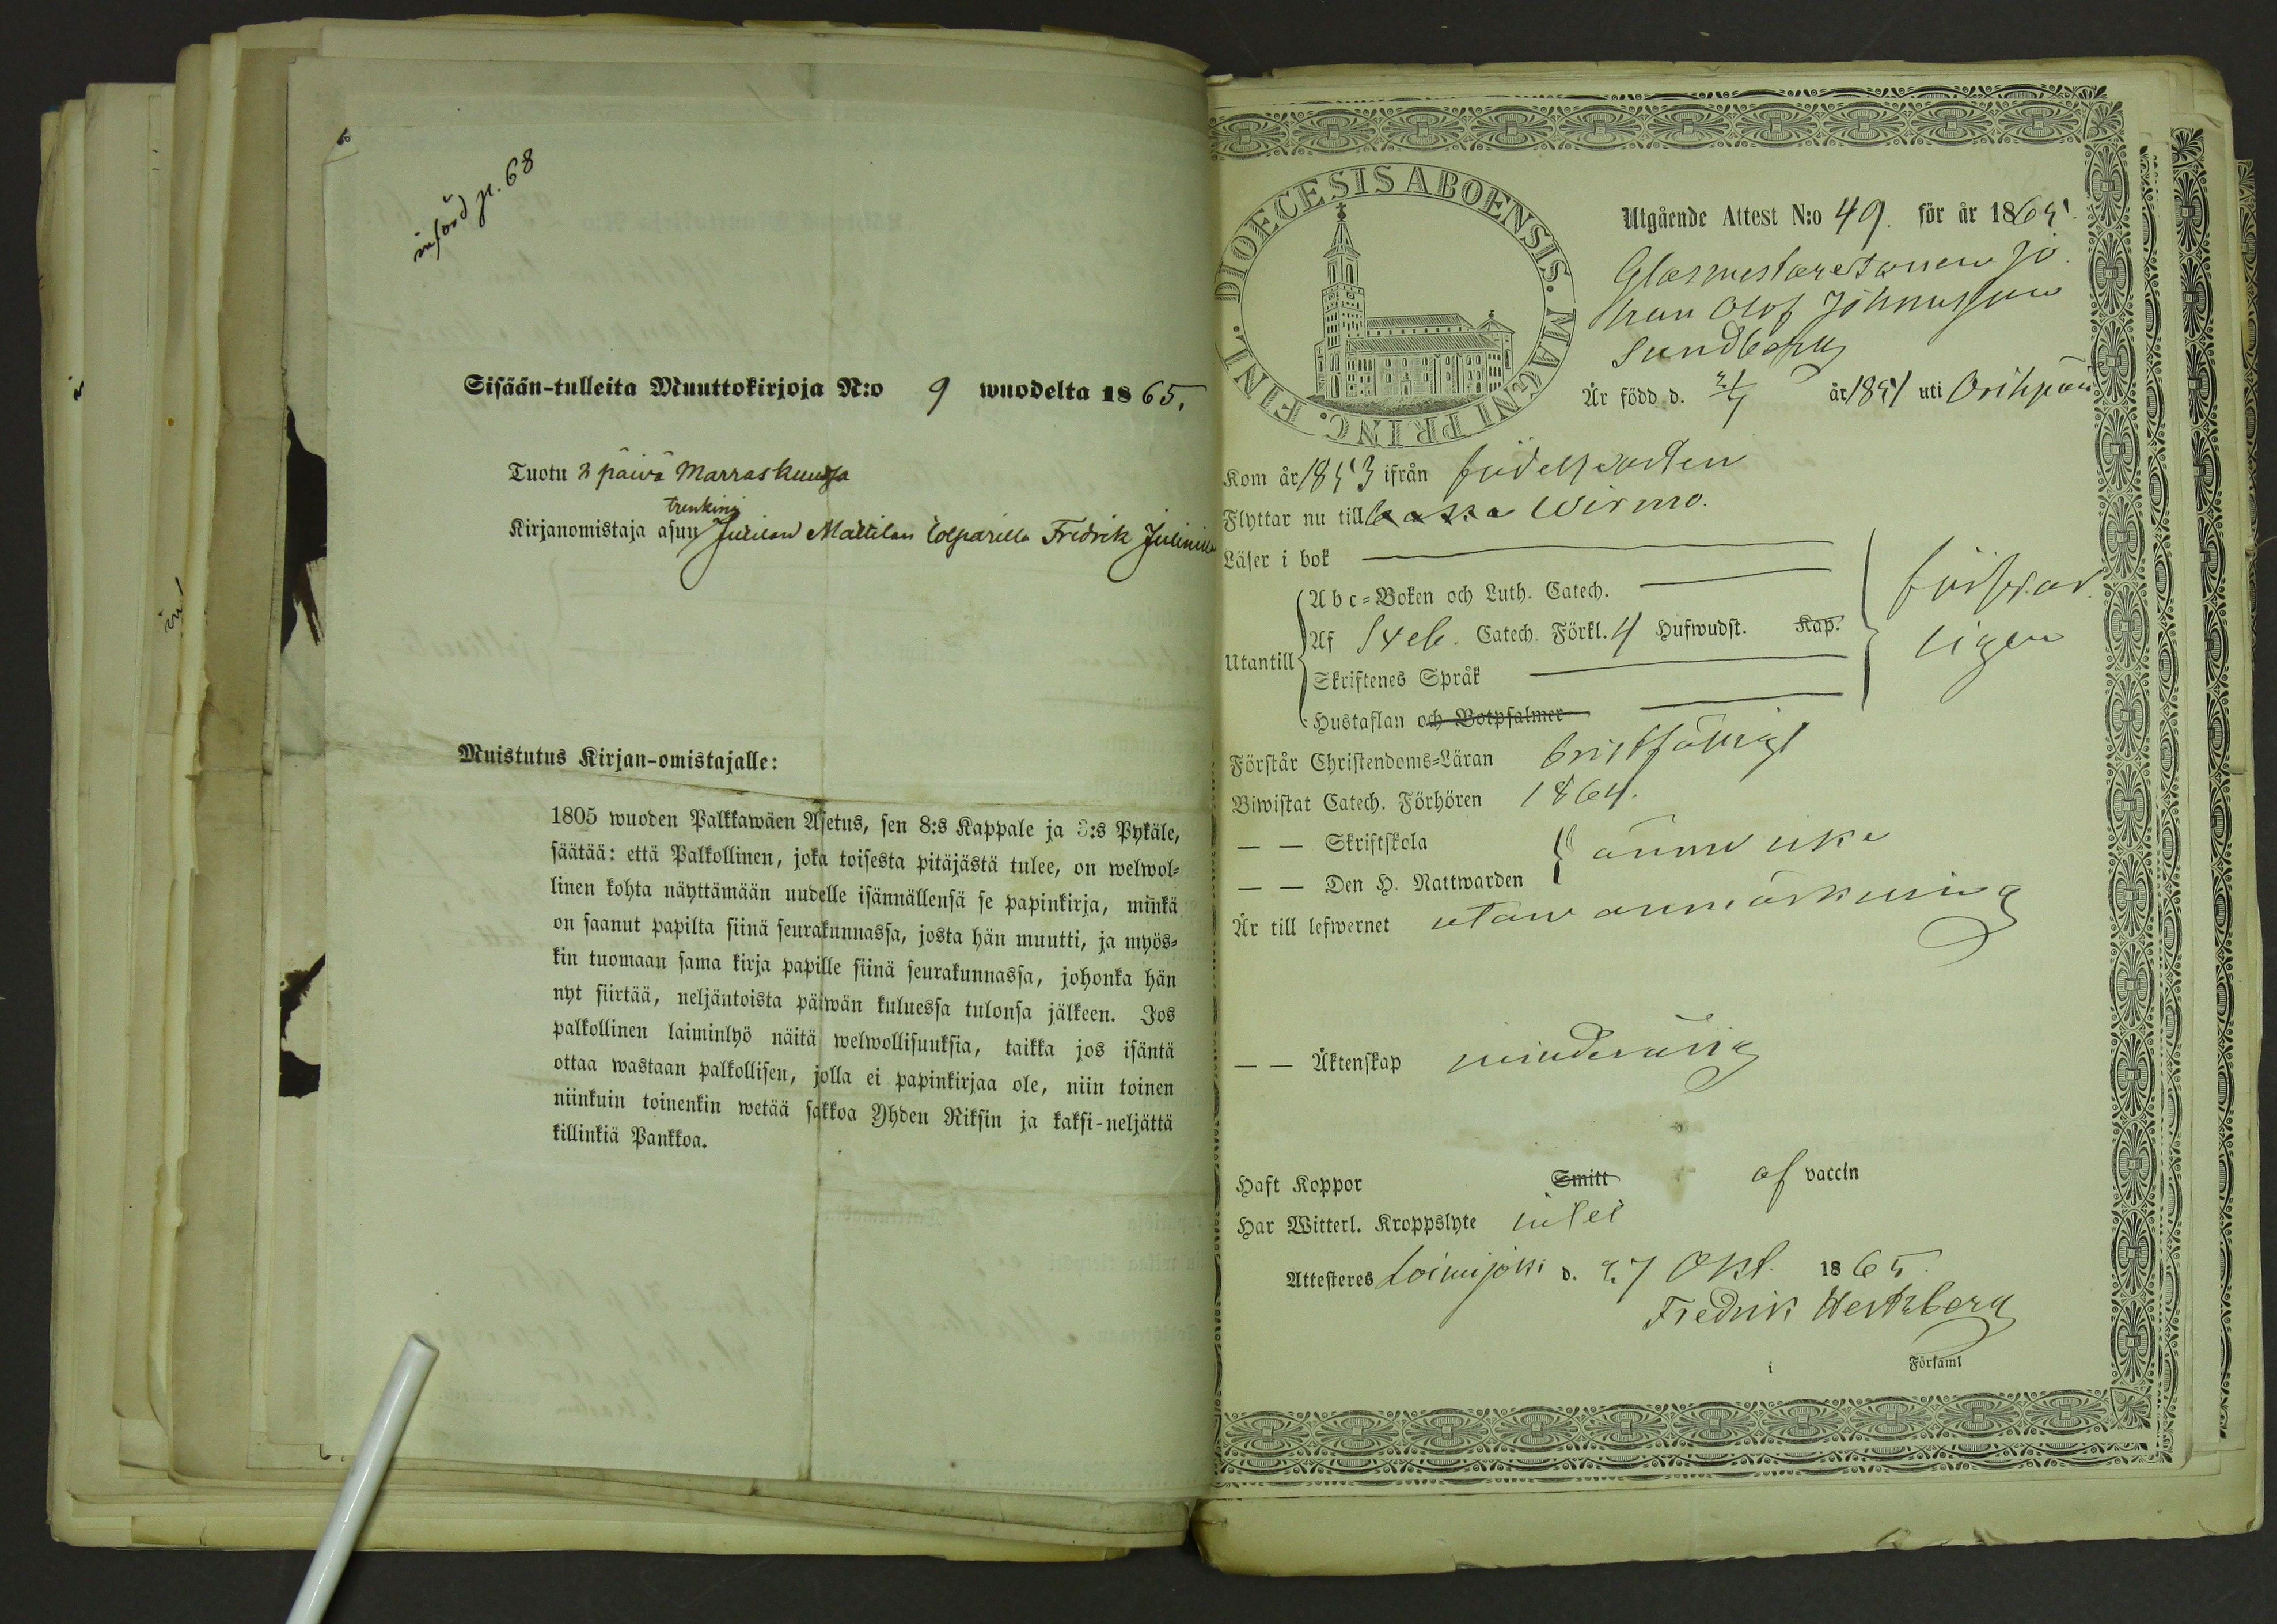 införd p. 68
Sisään-tulleita Muuttokirjoja N:o 9 wuodelta 1865.
Tuotu 8 päivä Marraskuussa
trenkinä
Kirjanomistaja asuu Mattilan Fredrik
Muistutus Kirjan-omistajalle:
1805 wuoden Palkkawäen Asetus, sen 8:s Kappale ja 3:s Pykäle,
säätää: että Palkollinen, joka toisesta pitäjästä tulee, on welwol-
linen kohta näyttämään uudelle isännällensä se papinkirja, minkä
on saanut papilta siinä seurakunnassa, josta hän muutti, ja myös-
kin tuomaan sama kirja papille siinä seurakunnassa, johonka hän
nyt siirtää, neljäntoista päiwän kuluessa tulonsa jälkeen. Jos
palkollinen laiminlyö näitä welwollisuuksia, taikka jos isäntä
ottaa wastaan palkollisen, jolla ei papinkirjaa ole, niin toinen
niinkuin toinenkin wetää sakkoa Yhden Riksin ja kaksi-neljättä
killinkiä Pankkoa.
FINL. DIOECESIS ABOENSIS. MAGNI PRINC.
Utgående Attest N:o 49. för år 1865.
Glasmestaresonen Jo
han Olof Johansson
Sundberg
Är född d. år 1851 uti Oripää
Kom år 1853 ifrån födelseorten
Flyttar nu till Wirmo.
Läser i bok
Abc-Boken och Luth. Catech.
Utantill Af Sveb. Catech. Förkl. 4 Hufwudst. Kap.
försvar
ligen
Skriftenes Språk
Hustaflan och Botpsalmer
Förstår Christendoms-Läran bristfälligt
Biwistat Catech. Förhören 1864.
— — Skriftskola
ännu icke
— — Den H. Nattwarden
Är till lefwernet utan anmärkning
— — Äktenskap minderårig
Haft Koppor Smitt af vaccin
Har Witterl. Kroppslyte intet
Attesteres Loimijoki d. 27 Okt. 1865
Fredrik Hertzberg
i Församl